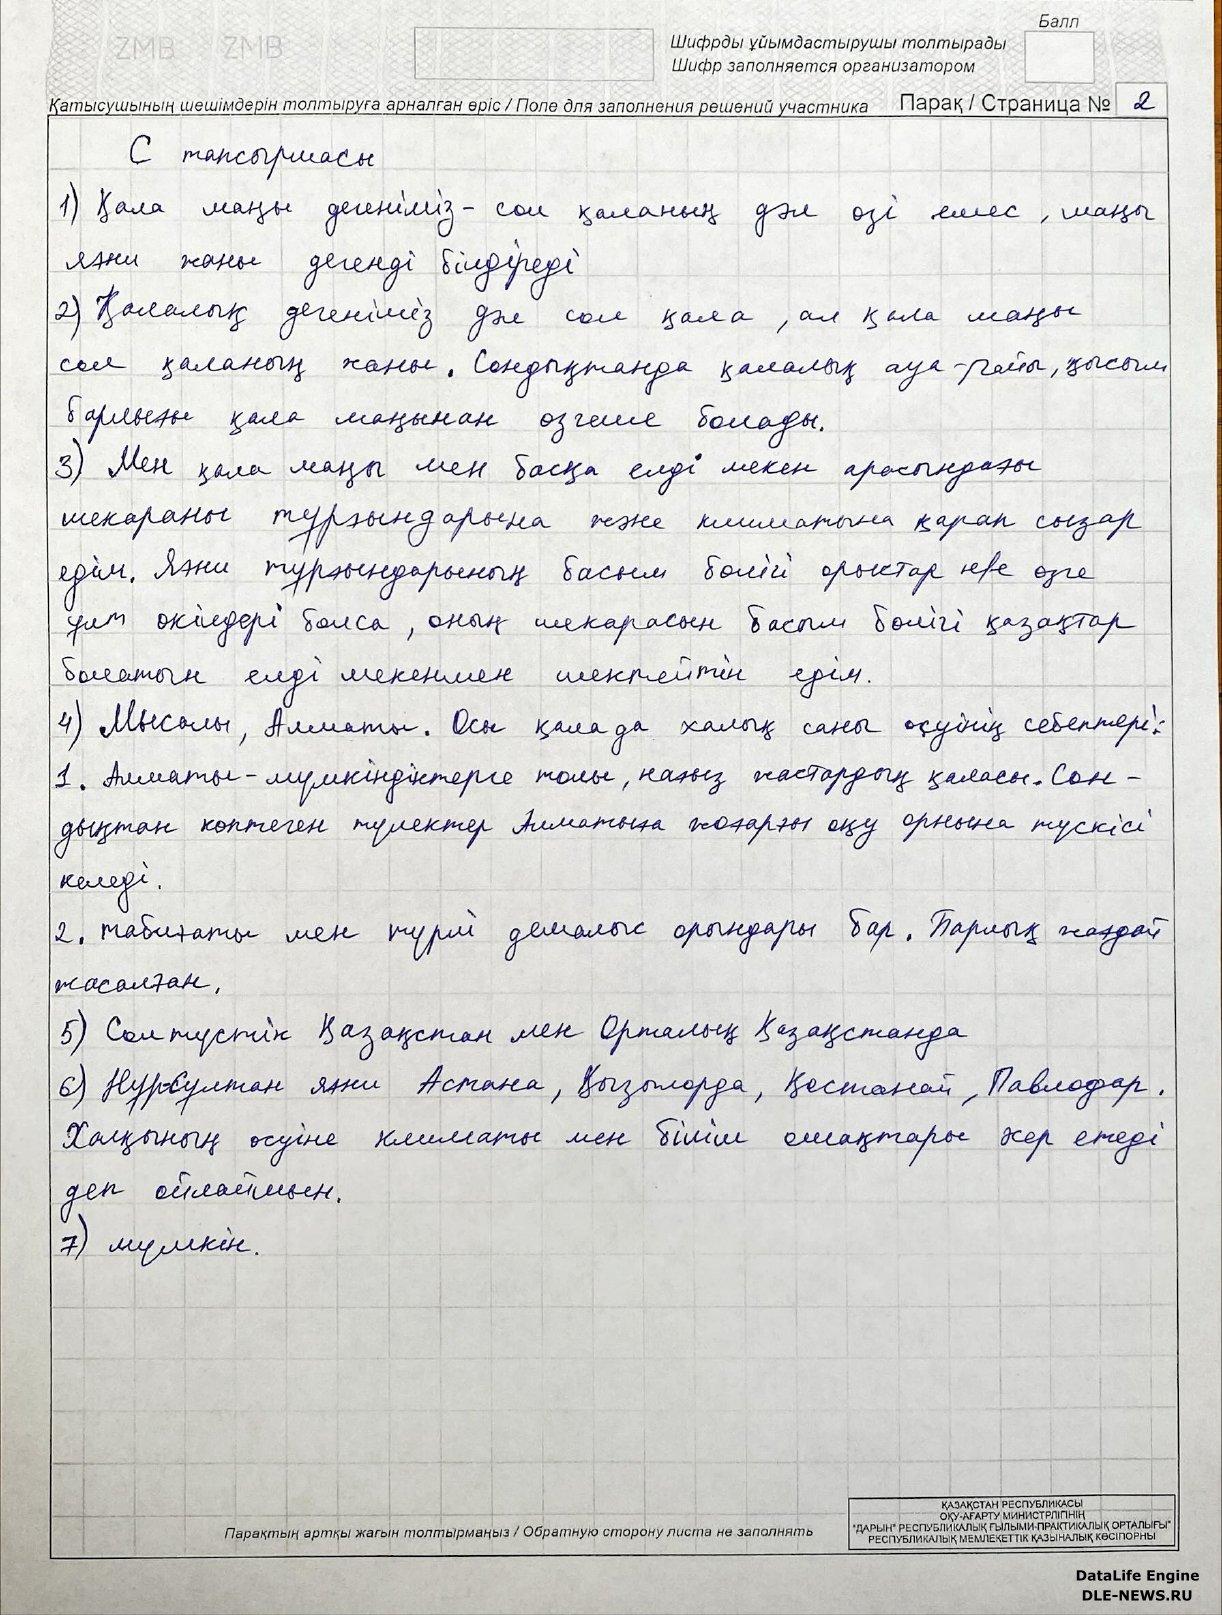 ZMB ZMB
Балл
Шифрды ұйымдастырушы толтырады
Шифр заполняется организатором
Қатысушының шешімдерін толтыруға арналған өріс / Поле для заполнения решений участника Парақ / Страница № 2
С тапсырмасы
1) Қала маңы дегеніміз - сол қаланың дәл өзі емес, маңы
яғни жаны дегенді білдіреді
2) Қалалық дегеніміз дәл сол қала, ал қала маңы
сол қаланың жаны. Сондықтанда қалалық ауа-райы, қысым
барлығы қала маңынан өзгеше болады.
3) Мен қала маңы мен басқа елді мекен арасындағы
шекараны тұрғындарына және климатына қарап сызар
едім. Яғни тұрғындарының басым бөлігі орыстар н/е өзге
ұлт өкілдері болса, оның шекарасын басым бөлігі қазақтар
болатын елді мекенмен шектейтін едім.
4) Мысалы, Алматы. Осы қалада халық саны өсуінің себептері:
1. Алматы - мүмкіндіктерге толы, нағыз жастардың қаласы. Сон-
дықтан көптеген түлектер Алматыға жоғарғы оқу орнына түскісі
келеді.
2. табиғаты мен түрлі демалыс орындары бар. Барлық жағдай
жасалған.
5) Солтүстік Қазақстан мен Орталық Қазақстанда
6) Нұр-Сұлтан яғни Астана, Қызылорда, Қостанай, Павлодар.
Халқының өсуіне климаты мен білім ошақтары әсер етеді
деп ойлаймын.
7) мүмкін.
Парақтың артқы жағын толтырмаңыз / Обратную сторону листа не заполнять
ҚАЗАҚСТАН РЕСПУБЛИКАСЫ
ОҚУ-АҒАРТУ МИНИСТРЛІГІНІҢ
"ДАРЫН" РЕСПУБЛИКАЛЫҚ ҒЫЛЫМИ-ПРАКТИКАЛЫҚ ОРТАЛЫҒЫ"
РЕСПУБЛИКАЛЫҚ МЕМЛЕКЕТТІК ҚАЗЫНАЛЫҚ КӘСІПОРНЫ
DataLife Engine
DLE-NEWS.RU